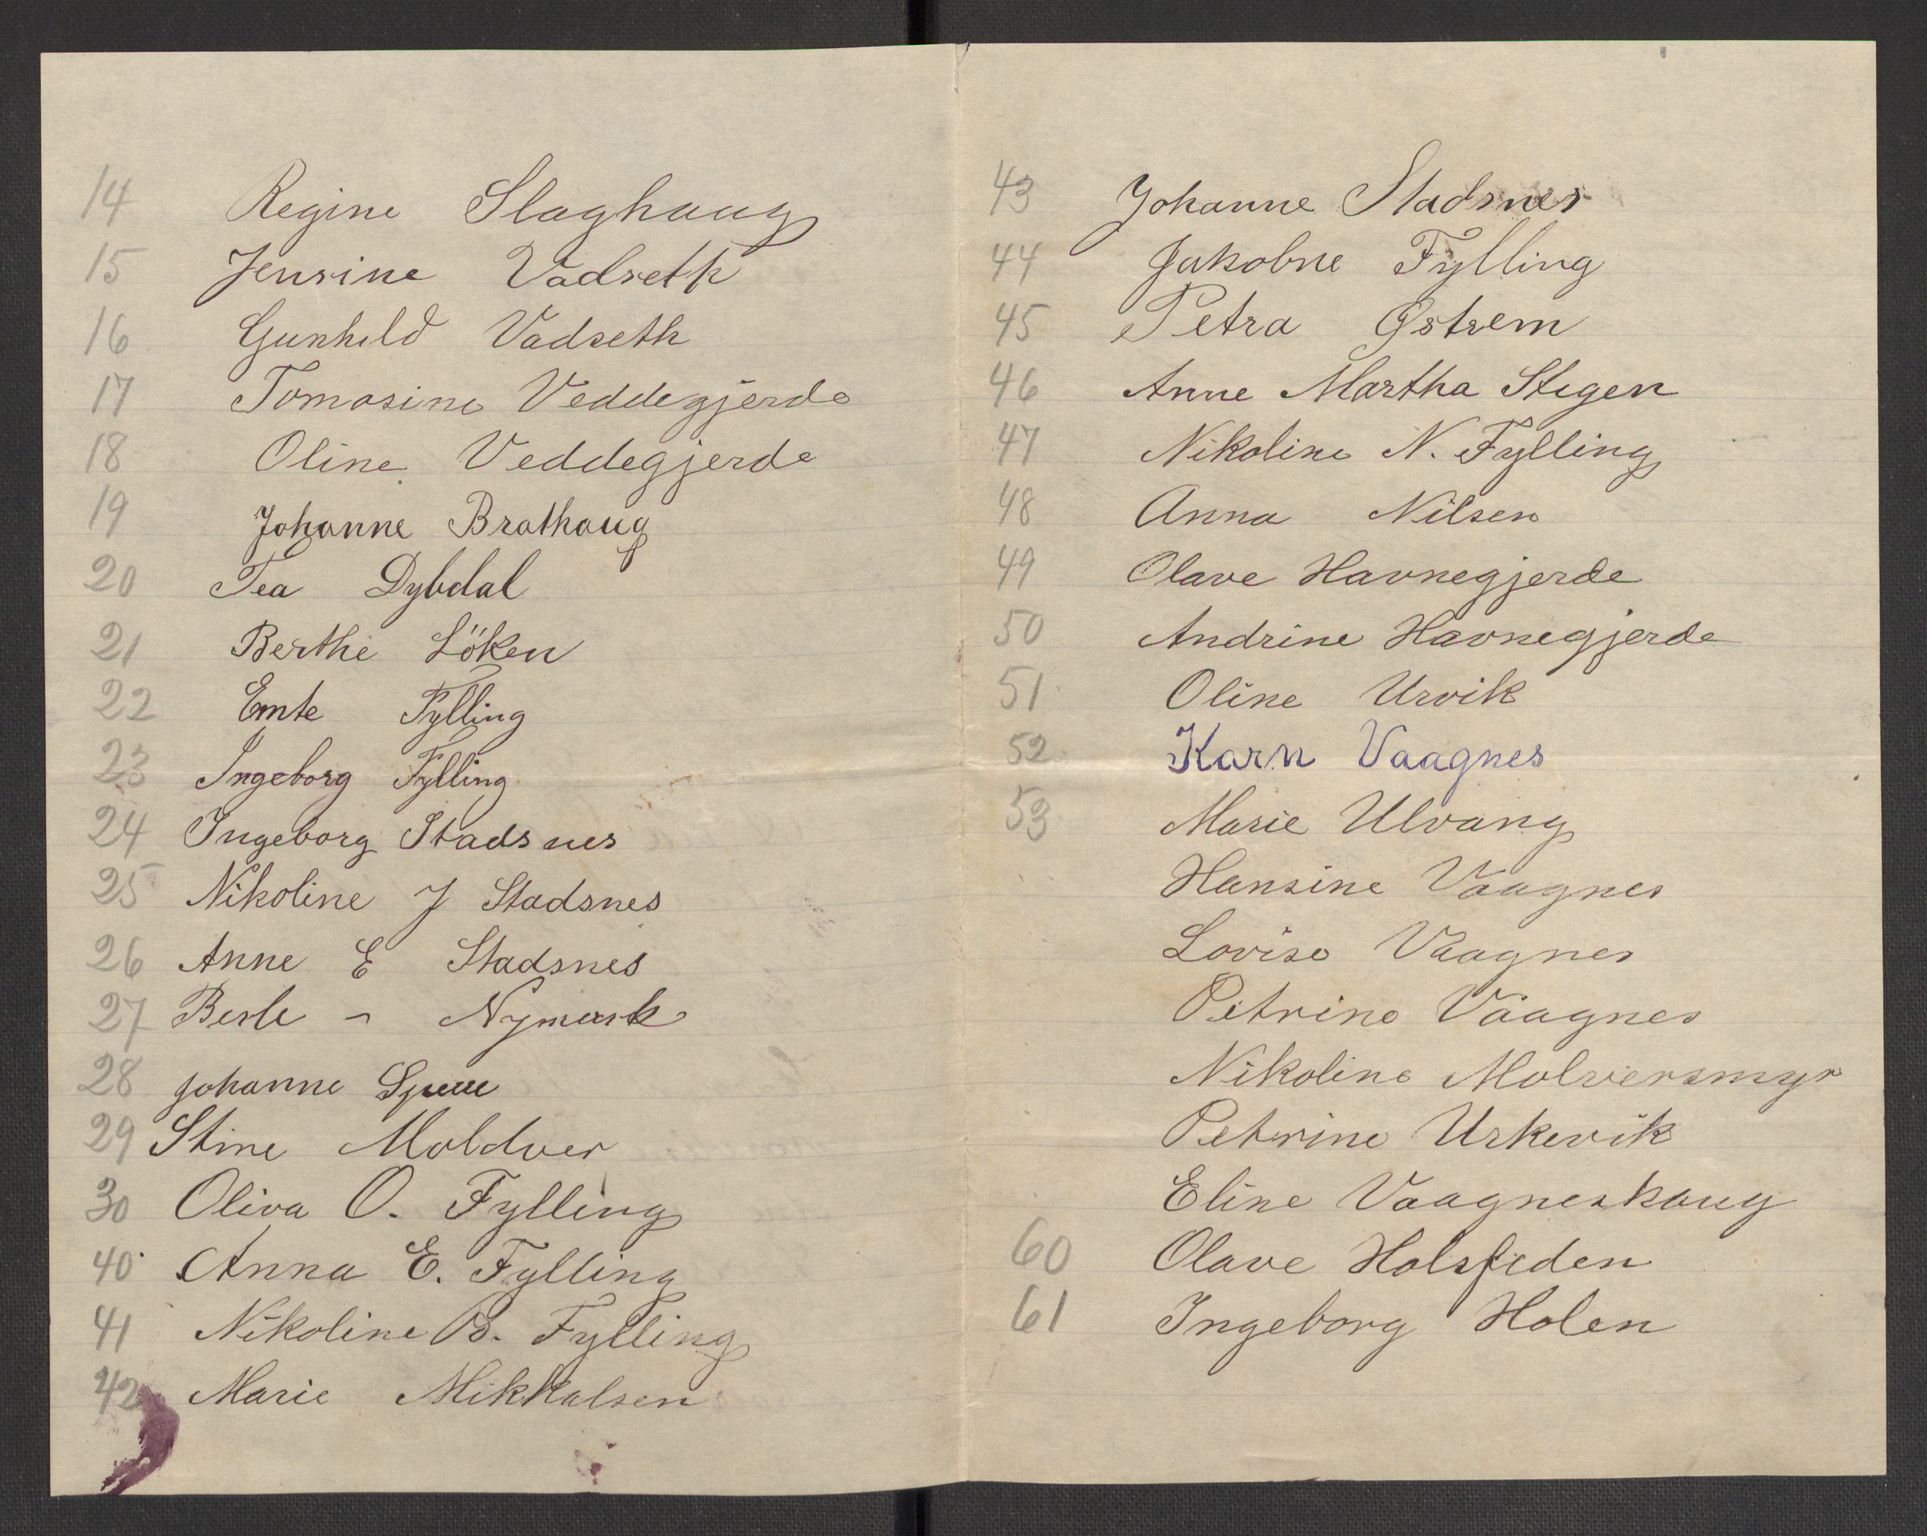 14 Regine Slaghaug
15 Jensine Vadseth
16 Gunhild Vadseth
17 Tomasine Veddegjerde
18 Oline Veddegjerde
19 Johanne Brathaug
20 Tea Dybdal
21 Berthe Löken
22 Emte Fylling
23 Ingeborg Fylling
24 Ingeborg Stadsnes
25 Nikoline J Stadsnes
26 Anne E Stadsnes
27 Berte - Nymark
28 Johanne
29 Stine Moldver
30 Oliva O. Fylling
40 Anna E. Fylling
41 Nikoline B. Fylling
42 Marie Mikkalsen
43 Johanne Stadsnes
44 Jakobne Fylling
45 Petra Østrem
46 Anne Martha Stegen
47 Nikoline N. Fylling
48 Anna Nilsen
49 Olave Havnegjerde
50 Andrine Havnegjerde
51 Oline Urvik
52 Karn Vaagnes
53 Marie Ulvang
Hansine Vaagnes
Lovise Vaagnes
Petrine Vaagnes
Nikoline Molversmyr
Petrine Urkevik
Eline Vaagneshaug
60 Olave Holsfeden
61 Ingeborg Holen